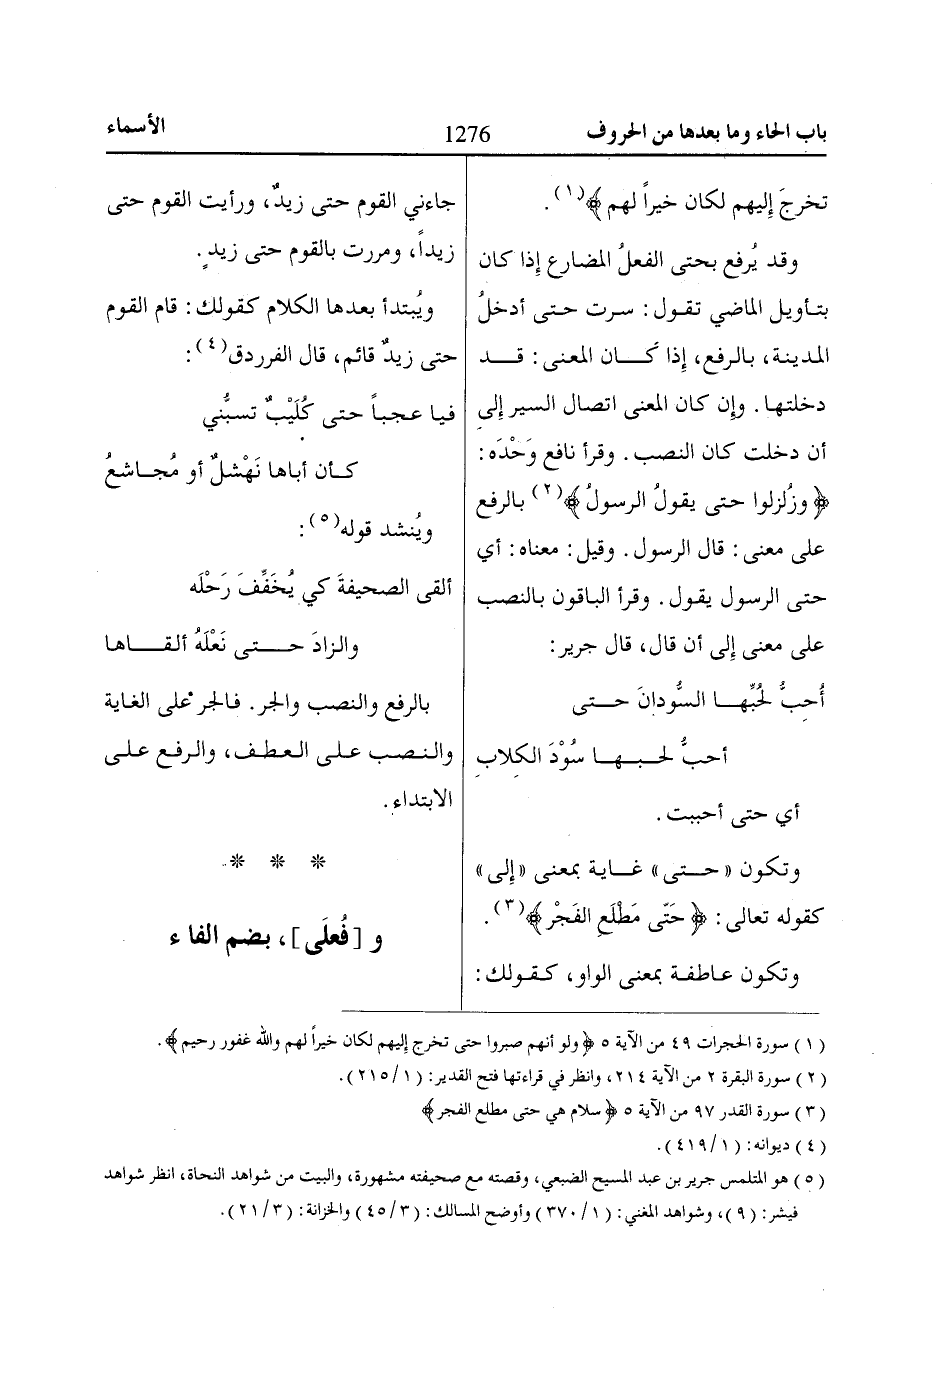 باب الحاء وما بعدها من الحروف 1276 الأسماء
تخرجَ إليهم لكان خيراً لهم ﴾(١).
وقد يُرفع بحتى الفعلُ المضارع إذا كان
بتأويل الماضي تقول: سرت حتى أدخلُ
المدينة، بالرفع، إذا كَان المعنى: قد
دخلتها. وإن كان المعنى اتصال السير إلى
أن دخلت كان النصب. وقرأ نافع وَحْدَه:
﴿ وزُلزلوا حتى يقولُ الرسولُ ﴾(٢) بالرفع
على معنى: قال الرسول. وقيل: معناه: أي
حتى الرسول يقول. وقرأ الباقون بالنصب
على معنى إلى أن قال، قال جرير:
أُحبُّ لحُبِّها السُّودانَ حتى
أحبُّ لحبها سُوْدَ الكلاب
أي حتى أحببت.
وتكون «حتى» غاية بمعنى «إلى»
كقوله تعالى: ﴿ حَتّى مَطْلَعِ الفَجْر ﴾(٣).
وتكون عاطفة بمعنى الواو، كقولك:
جاءني القوم حتى زيدٌ، ورأيت القوم حتى
زيداً، ومررت بالقوم حتى زيدٍ.
ويُبتدأ بعدها الكلام كقولك: قام القوم
حتى زيدٌ قائم، قال الفرزدق(٤):
فيا عجباً حتى كُلَيْبٌ تسبُّني
كأن أباها نَهْشلٌ أو مُجاشعُ
ويُنشد قوله(٥):
ألقى الصحيفةَ كي يُخَفِّفَ رَحْلَه
والزادَ حتى نَعْلَهُ ألقاها
بالرفع والنصب والجر. فالجر على الغاية
والنصب على العطف، والرفع على
الابتداء.
* * *
و [فُعلَى]، بضم الفاء
(١) سورة الحجرات ٤٩ من الآية ٥ ﴿ ولو أنهم صبروا حتى تخرج إليهم لكان خيراً لهم والله غفور رحيم ﴾.
(٢) سورة البقرة ٢ من الآية ٢١٤، وانظر في قراءتها فتح القدير: (١/٢١٥).
(٣) سورة القدر ٩٧ من الآية ٥ ﴿ سلام هي حتى مطلع الفجر ﴾
(٤) ديوانه: (١/٤١٩).
(٥) هو المتلمس جرير بن عبد المسيح الضبعي، وقصته مع صحيفته مشهورة، والبيت من شواهد النحاة، انظر شواهد
فيشر: (٩)، وشواهد المغني: (١/٣٧٠) وأوضح المسالك: (٣/٤٥) والخزانة: (٣/٢١).